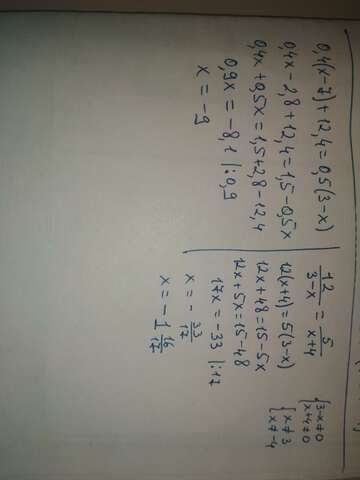 0,4(x-7)+12,4=0,5(3-x)
0,4x-2,8+12,4=1,5-0,5x
0,4x+0,5x=1,5+2,8-12,4
0,9x=-8,1 |:0,9
x=-9
12/(3-x) = 5/(x+4)
12(x+4)=5(3-x)
12x+48=15-5x
12x+5x=15-48
17x=-33 |:17
x=-33/17
x=-1 16/17
{3-x≠0
x+4≠0
{x≠3
x≠-4